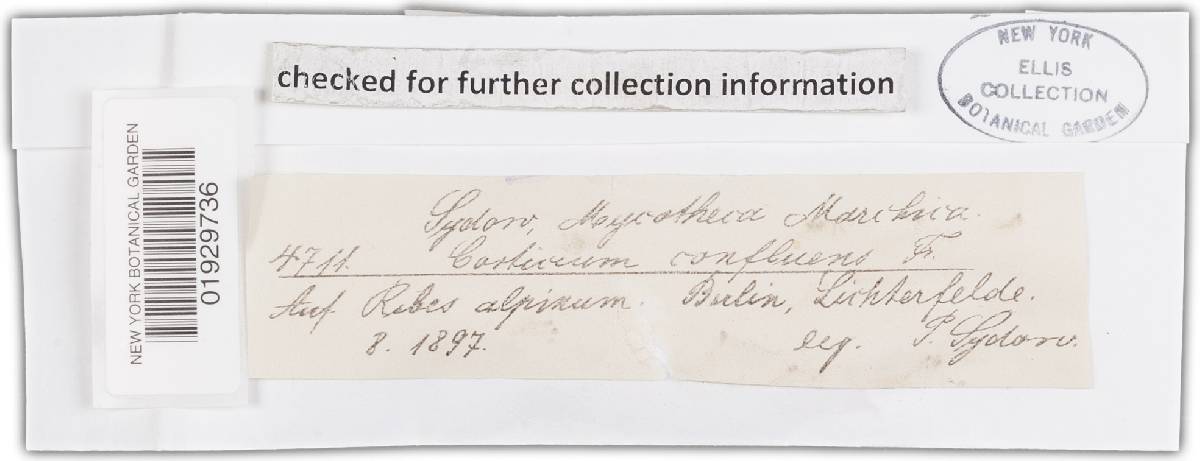 checked for further collection information
NEW YORK
ELLIS
COLLECTION
BOTANICAL GARDEN
NEW YORK BOTANICAL GARDEN
01929736
Sydow, Mycotheca Marchica.
4711. Corticium confluens Fr.
Auf Ribes alpinum. Berlin, Lichterfelde.
8. 1897. leg. P. Sydow.